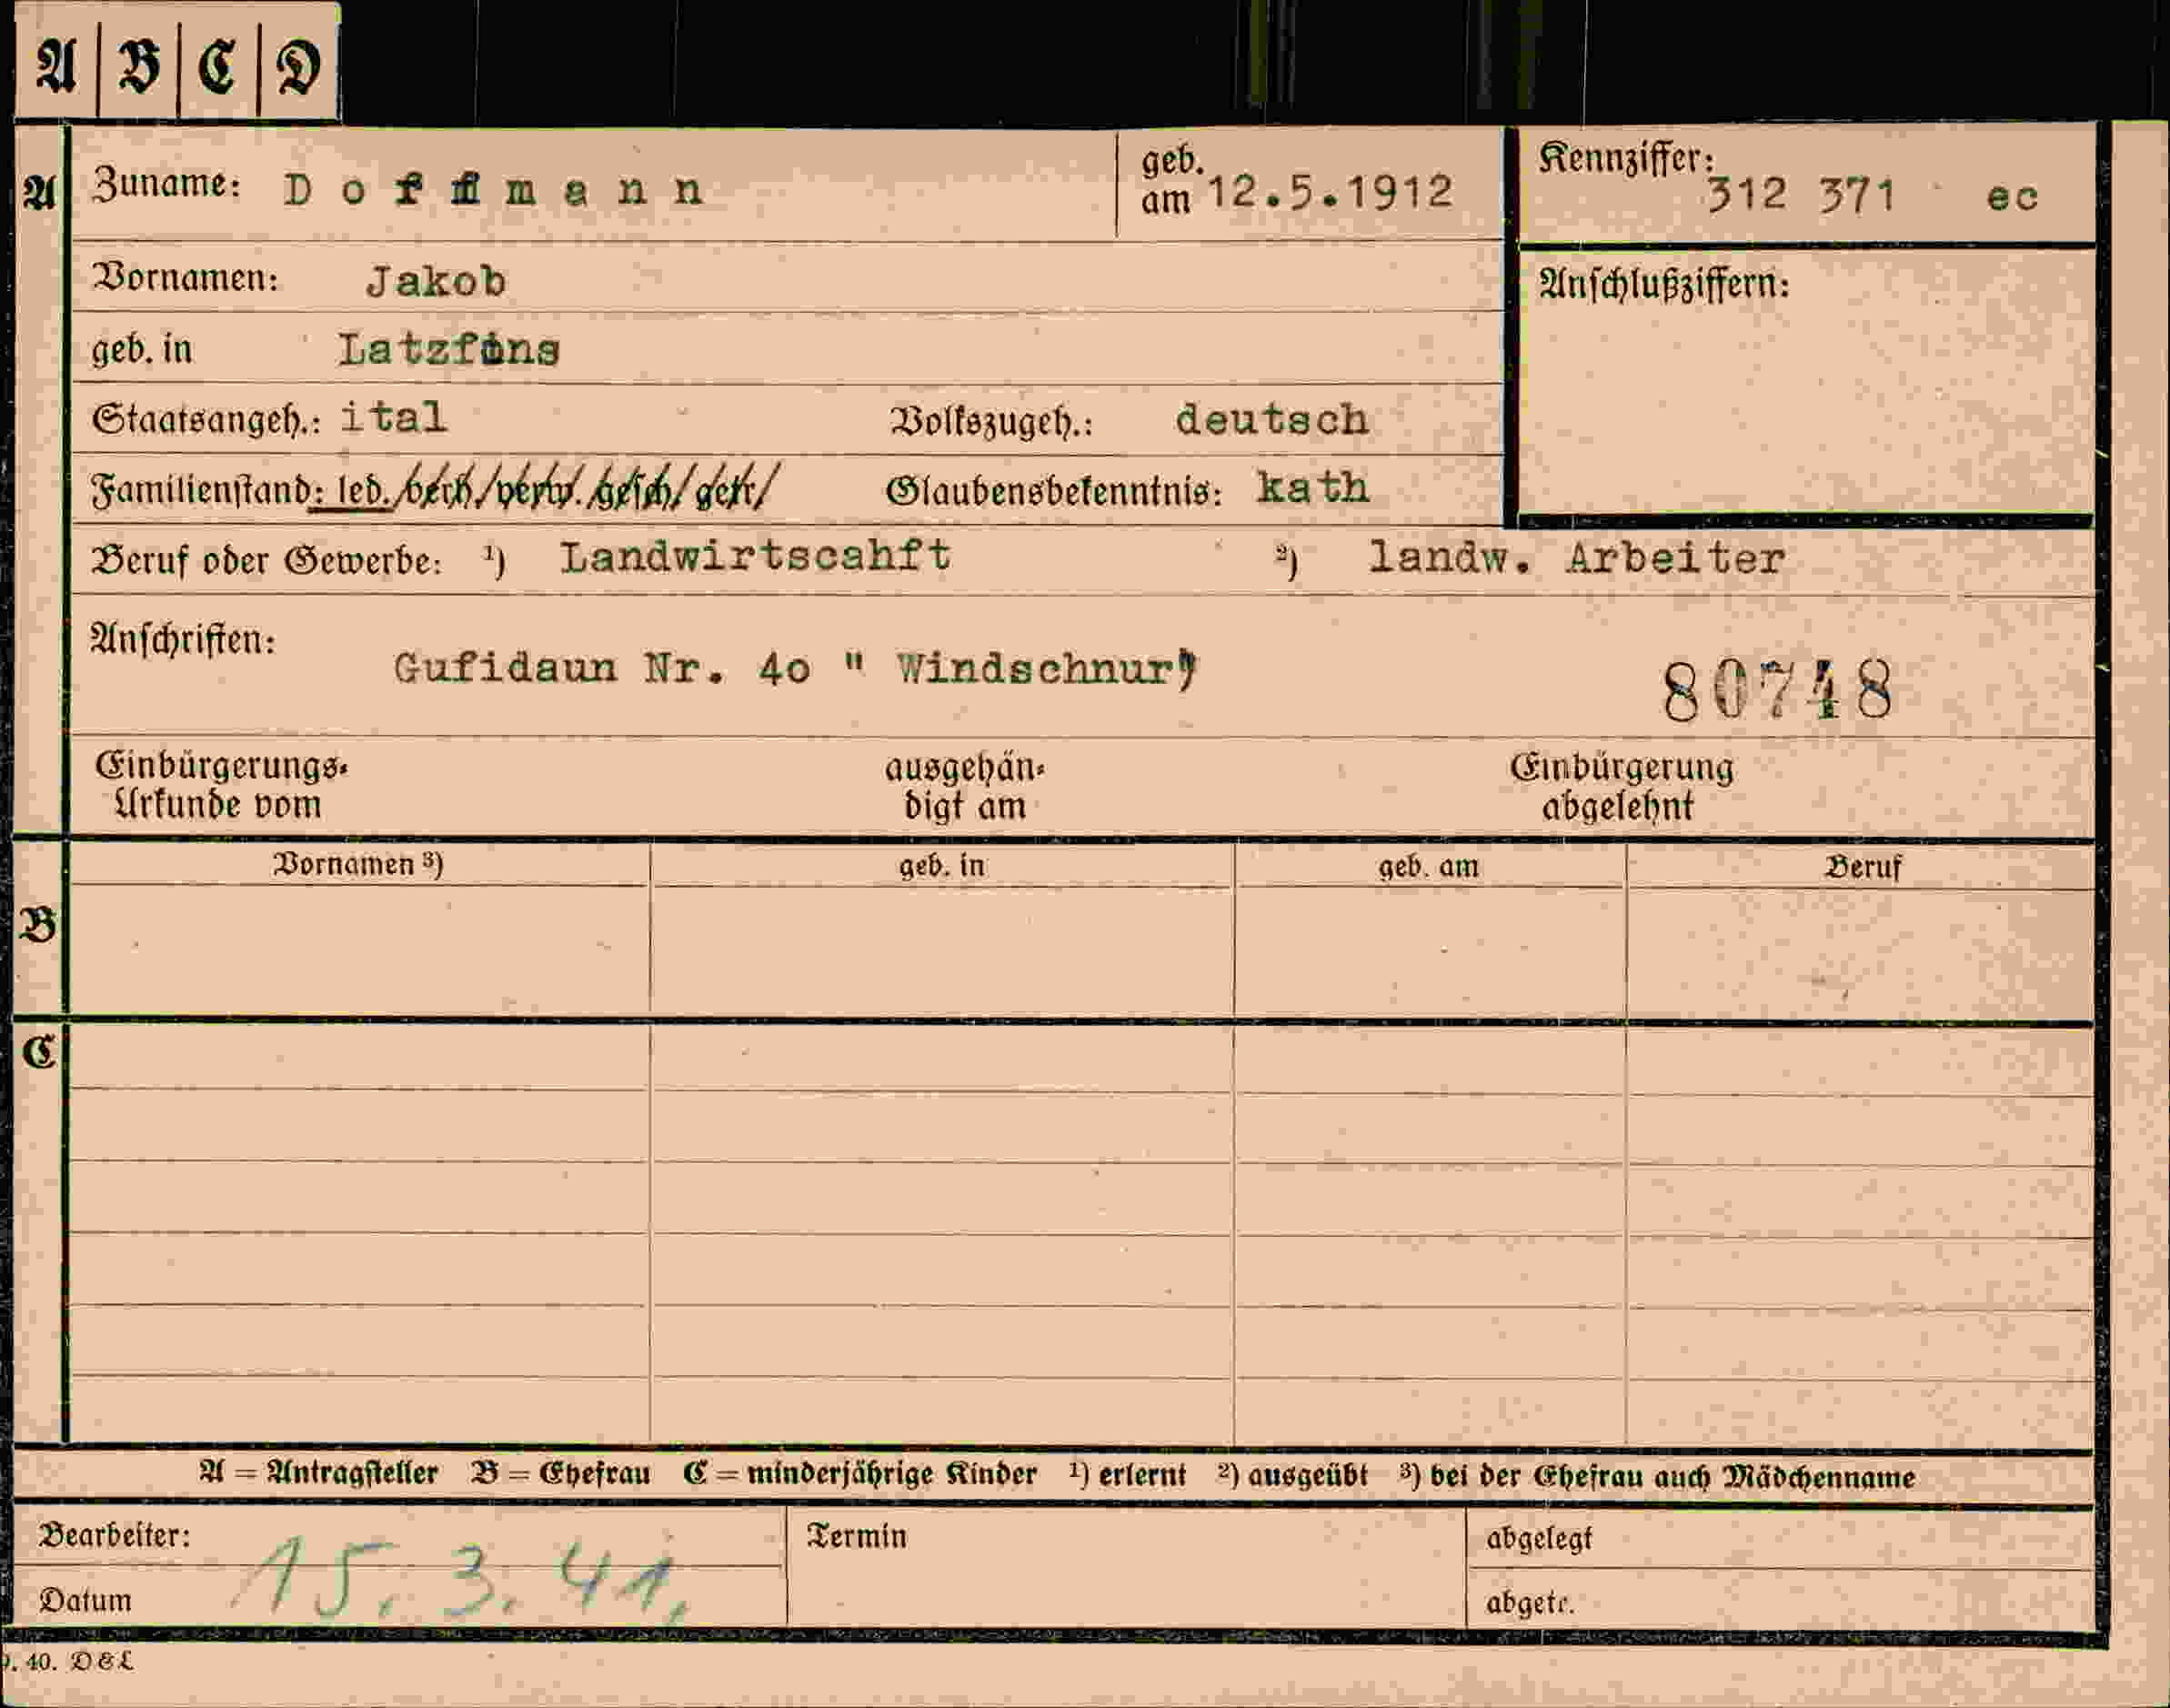 A B C D
A Zuname: Dorfmann geb. am 12.5.1912 Kennziffer: 312 371 ec
Vornamen: Jakob Anschlußziffern:
geb. in Latzfons
Staatsangeh.: ital Volkszugeh.: deutsch
Familienstand: led./verh./verw./gesch/getr/ Glaubensbekenntnis: kath
Beruf oder Gewerbe: ¹) Landwirtscahft ²) landw. Arbeiter
Anschriften: Gufidaun Nr. 4o " Windschnur" 80748
Einbürgerungs- ausgehän- Einbürgerung
Urkunde vom digt am abgelehnt
Vornamen ³) geb. in geb. am Beruf
B
C
A = Antragsteller B = Ehefrau C = minderjährige Kinder ¹) erlernt ²) ausgeübt ³) bei der Ehefrau auch Mädchenname
Bearbeiter: Termin abgelegt
Datum 15. 3. 41. abgetr.
40. D & L